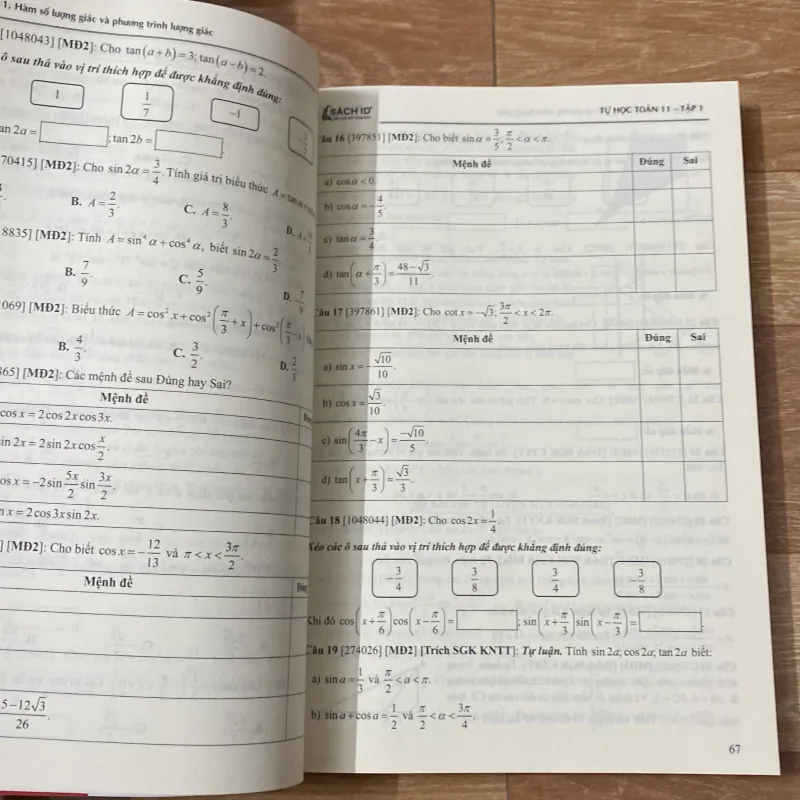 1. Hàm số lượng giác và phương trình lượng giác
[1048043] [MĐ2]: Cho tan(a+b)=3; tan(a−b)=2.
ô sau thả vào vị trí thích hợp để được khẳng định đúng:
1 1/7 −1
tan 2a = ; tan 2b =
70415] [MĐ2]: Cho sin 2α = 3/4. Tính giá trị biểu thức A = tan α
B. A = 2/3. C. A = 8/3. D.
8835] [MĐ2]: Tính A = sin⁴ α + cos⁴ α, biết sin 2α = 2/3.
B. 7/9. C. 5/9. D.
069] [MĐ2]: Biểu thức A = cos² x + cos²(π/3 + x) + cos²(π/3 − x)
B. 4/3. C. 3/2. D. 2/3.
865] [MĐ2]: Các mệnh đề sau Đúng hay Sai?
Mệnh đề
cos x = 2cos 2x cos 3x.
in 2x = 2sin 2x cos x/2.
os x = −2sin 5x/2 sin 3x/2.
n x = 2cos 3x sin 2x.
] [MĐ2]: Cho biết cos x = −12/13 và π < x < 3π/2.
Mệnh đề
5−12√3/26.
SÁCH ID
TỰ HỌC TOÁN 11 – TẬP 1
Câu 16 [397851] [MĐ2]: Cho biết sin α = 3/5; π/2 < α < π.
Mệnh đề Đúng Sai
a) cos α < 0.
b) cos α = −4/5.
c) tan α = 3/4.
d) tan(α + π/3) = 48−√3/11.
Câu 17 [397861] [MĐ2]: Cho cot x = −√3; 3π/2 < x < 2π.
Mệnh đề Đúng Sai
a) sin x = −√10/10.
b) cos x = √3/10.
c) sin(4π/3 − x) = −√10/5.
d) tan(x + π/3) = √3/3.
Câu 18 [1048044] [MĐ2]: Cho cos 2x = 1/4.
Kéo các ô sau thả vào vị trí thích hợp để được khẳng định đúng:
−3/4 3/8 3/4 −3/8
Khi đó cos(x + π/6) cos(x − π/6) = ; sin(x + π/3) sin(x − π/3) = .
Câu 19 [274026] [MĐ2] [Trích SGK KNTT]: Tự luận. Tính sin 2a; cos 2a; tan 2a biết:
a) sin a = 1/3 và π/2 < a < π.
b) sin a + cos a = 1/2 và π/2 < α < 3π/4.
67